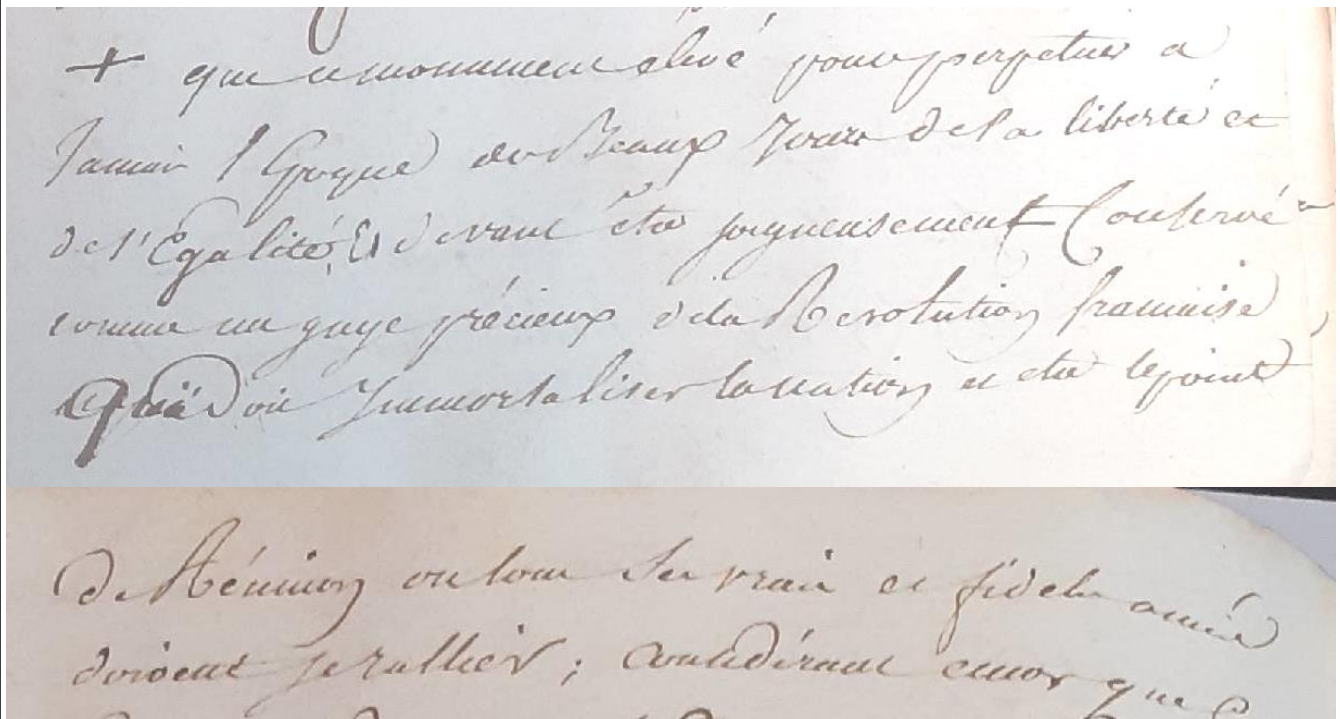 + que ce monument élevé pour perpetuer a
Jamais l'Epoque des Beaux Jours de la liberté et
de l'Egalité, devant etre soigneusement Conservé
comme un gage précieux de la Revolution francaise
Qui Doit Immortaliser la nation et etre le point
de Réunion ou tous Ses vrais et fideles amis
doivent se rallier ; Considérant encor que